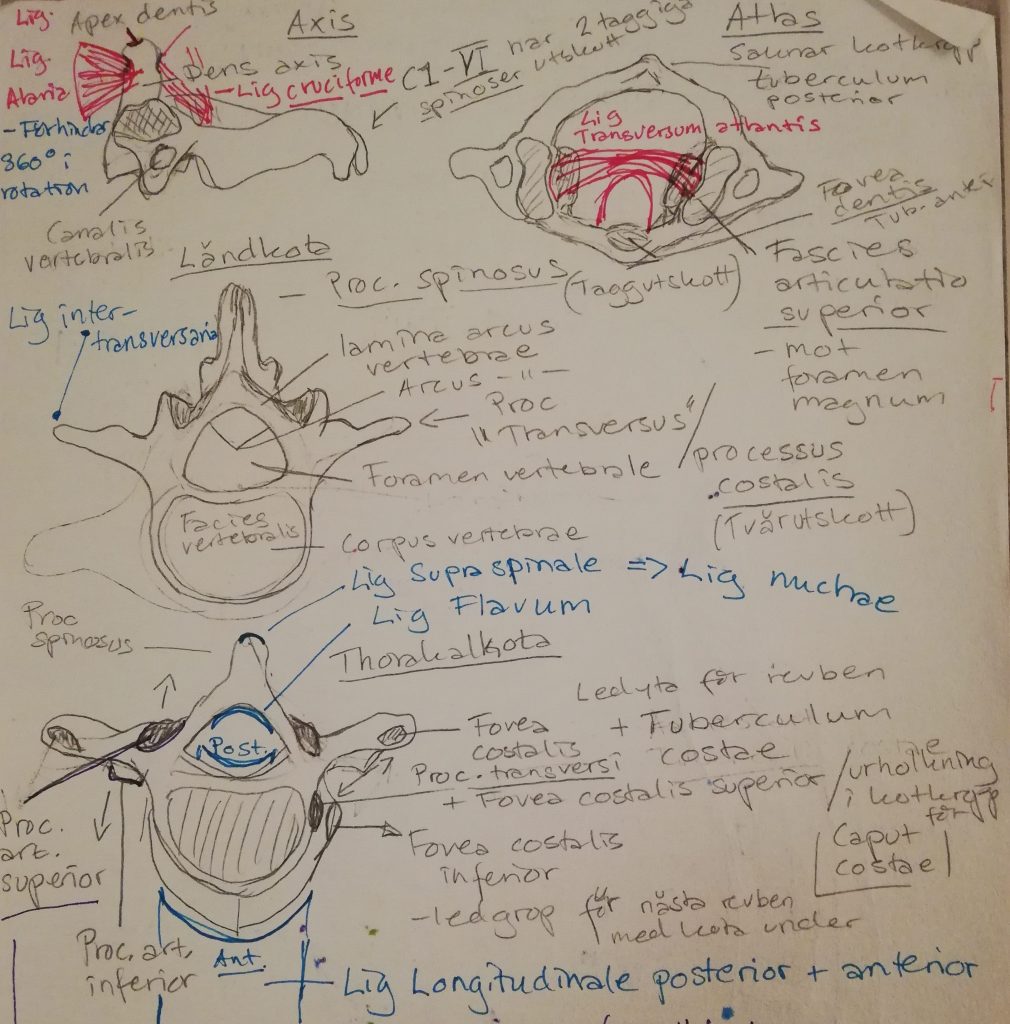 Lig. Apex dentis
Axis
Lig.
Alaria
- Förhindar
360° i
rotation
Dens axis
- Lig cruciforme
C1-VI har 2 taggiga
spinoser utskott
Canalis
vertebralis
Atlas
Saknar kotkropp
tuberculum
posterior
Lig
Transversum atlantis
Fovea
dentis
Tub. anti
Fascies
articulatio
superior
- mot
foramen
magnum
Ländkota
Lig inter-
transversaria
- Proc. spinosus (Taggutskott)
lamina arcus
vertebrae
Arcus -"-
Proc
"Transversus"/
processus
costalis
(Tvärutskott)
Foramen vertebrale
Facies
vertebralis
Corpus vertebrae
Lig Supraspinale => Lig nuchae
Lig Flavum
Proc
spinosus
Thorakalkota
Post.
Ledyta för revben
Fovea + Tuberculum
costalis costae
Proc. transversi
+ Fovea costalis superior /urholkning
i kotkropp
för
Caput
costae
Fovea costalis
inferior
- ledgrop för nästa revben
med kota under
Proc.
art.
superior
Proc. art.
inferior
Ant.
Lig Longitudinale posterior + anterior